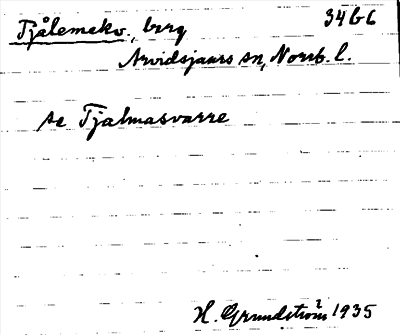 Tjålemekv., berg 34G6
Arvidsjaurs sn, Norrb. l.
se Tjalmasvarre
H. Grundström 1935